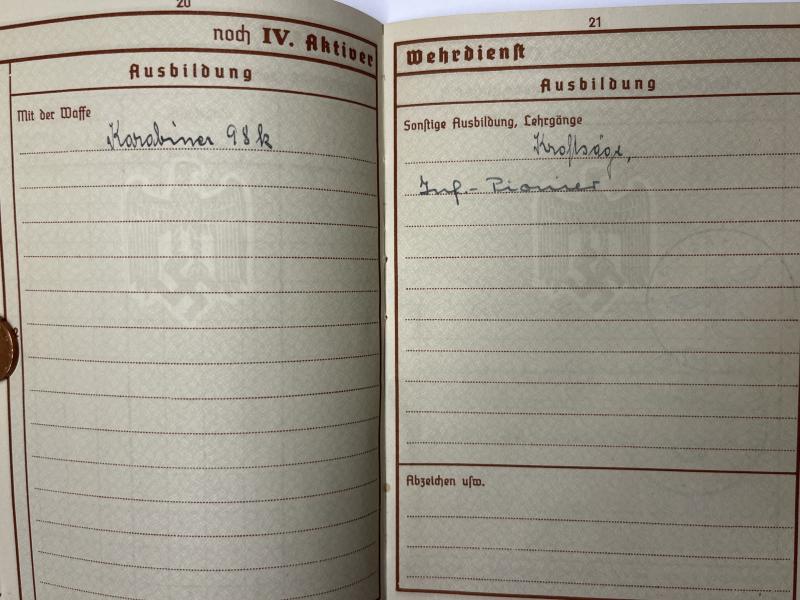 20
noch IV. Aktiver
Ausbildung
Mit der Waffe
Karabiner 98k
21
Wehrdienst
Ausbildung
Sonstige Ausbildung, Lehrgänge
Kraftsäge,
Inf.-Pionier
Abzeichen usw.